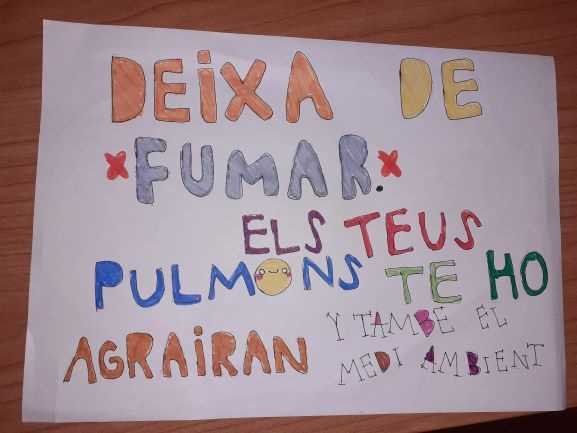 DEIXA DE
*FUMAR.*
ELS TEUS
PULMONS TE HO
AGRAIRAN
Y TAMBE EL
MEDI AMBIENT